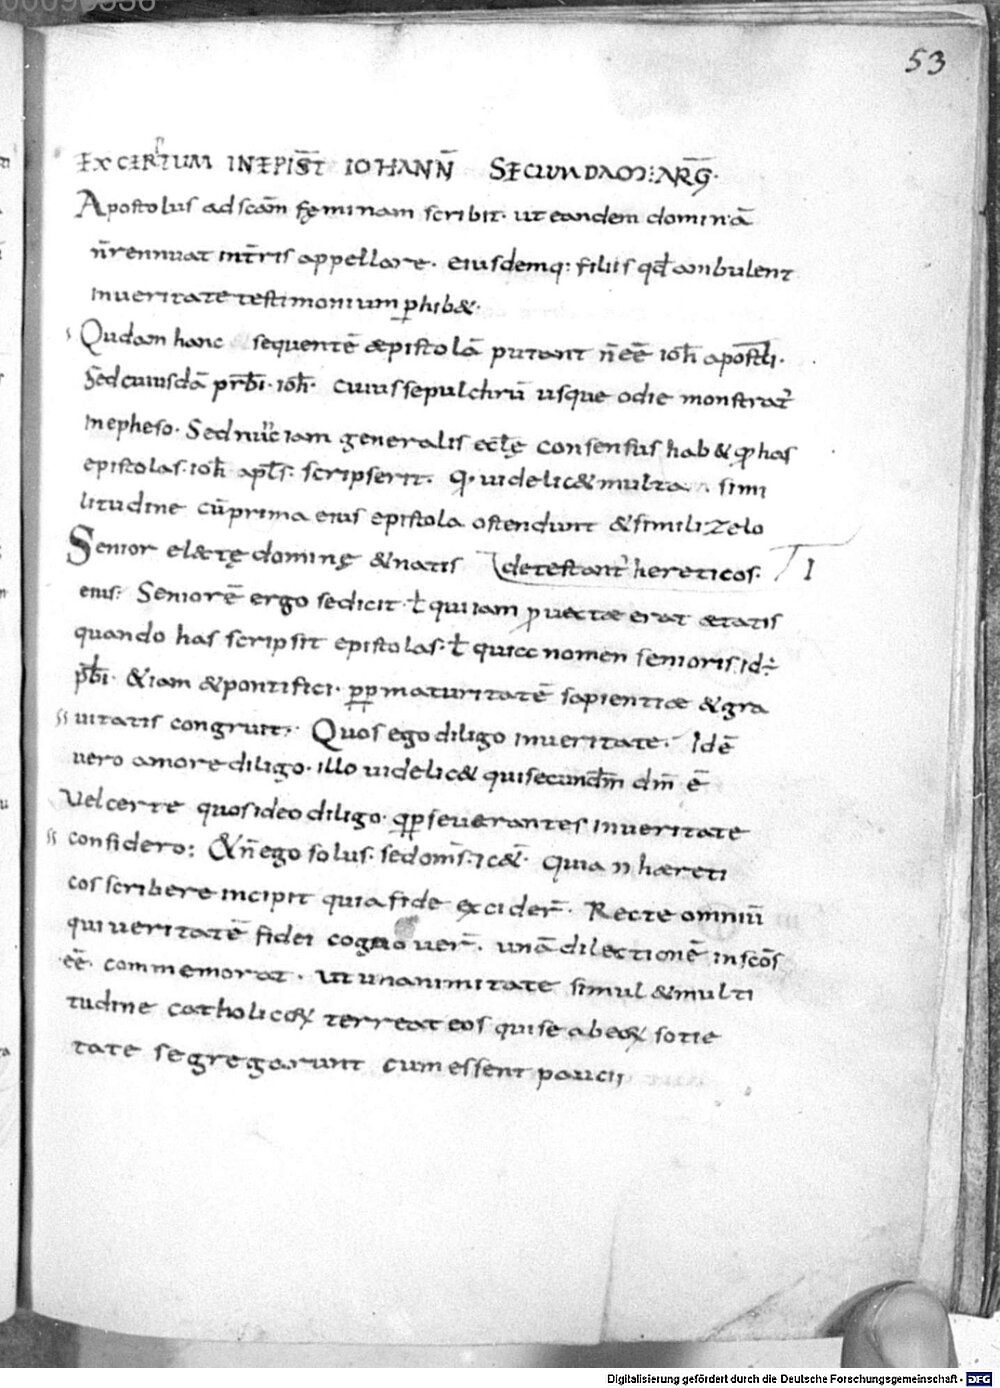 53
EXCERPTUM IN EPIST̄ IOHANN̄ SECUNDAM: ARḠ.
Apostolus ad scām fęminam scribit. ut eandem dominā
n̄ rennuat int̄ris appellare. eiusdemq: filiis qđ ambulent
in ueritate testimonium ꝑhib&.
Qudam hanc sequentē æpistolā putant n̄ eē ioħ apostoli.
Sed cuiusdā prb̄i. ioħ. cuius sepulchrū usque odie monstrat᷑
in epheso. Sed nūc iam generalis eccłę consensus hab& ꝙ has
epistolas. ioħ apłs. scripserit. Q. uidelic& multa simi
litudine cū prima eius epistola ostendunt & simili zelo
Senior elætę dominę & natis detestant᷑ hereticos. I
eius: Seniorē ergo se dicit. ł qui iam ꝓuectæ erat ætatis
quando has scripsit epistolas. ł quia nomen senioris id÷
prb̄i. & iam & pontifici. ꝓp maturitatē sapientiæ & gra
uitatis congruit. Quos ego diligo in ueritate. Idē
uero amore diligo. illo uidelic& qui secundm̄ dm̄ ē
Vel certe quos ideo diligo. q̄ ꝑseuerantes in ueritate
confidero: & n̄ ego solus. sed om̄s. 7c&̄. Quia n̄ hæreti
cos scribere incipit quia fide excider̄. Recte omniū
qui ueritatē fidei cognouer̄. unā dilectionē in scōs
eē. commemorat. Ut unanimitate simul & multi
tudine catholicoꝝ terreat eos qui se ab eoꝝ sotie
tate segregarunt cum essent paucii
Digitalisierung gefördert durch die Deutsche Forschungsgemeinschaft - DFG